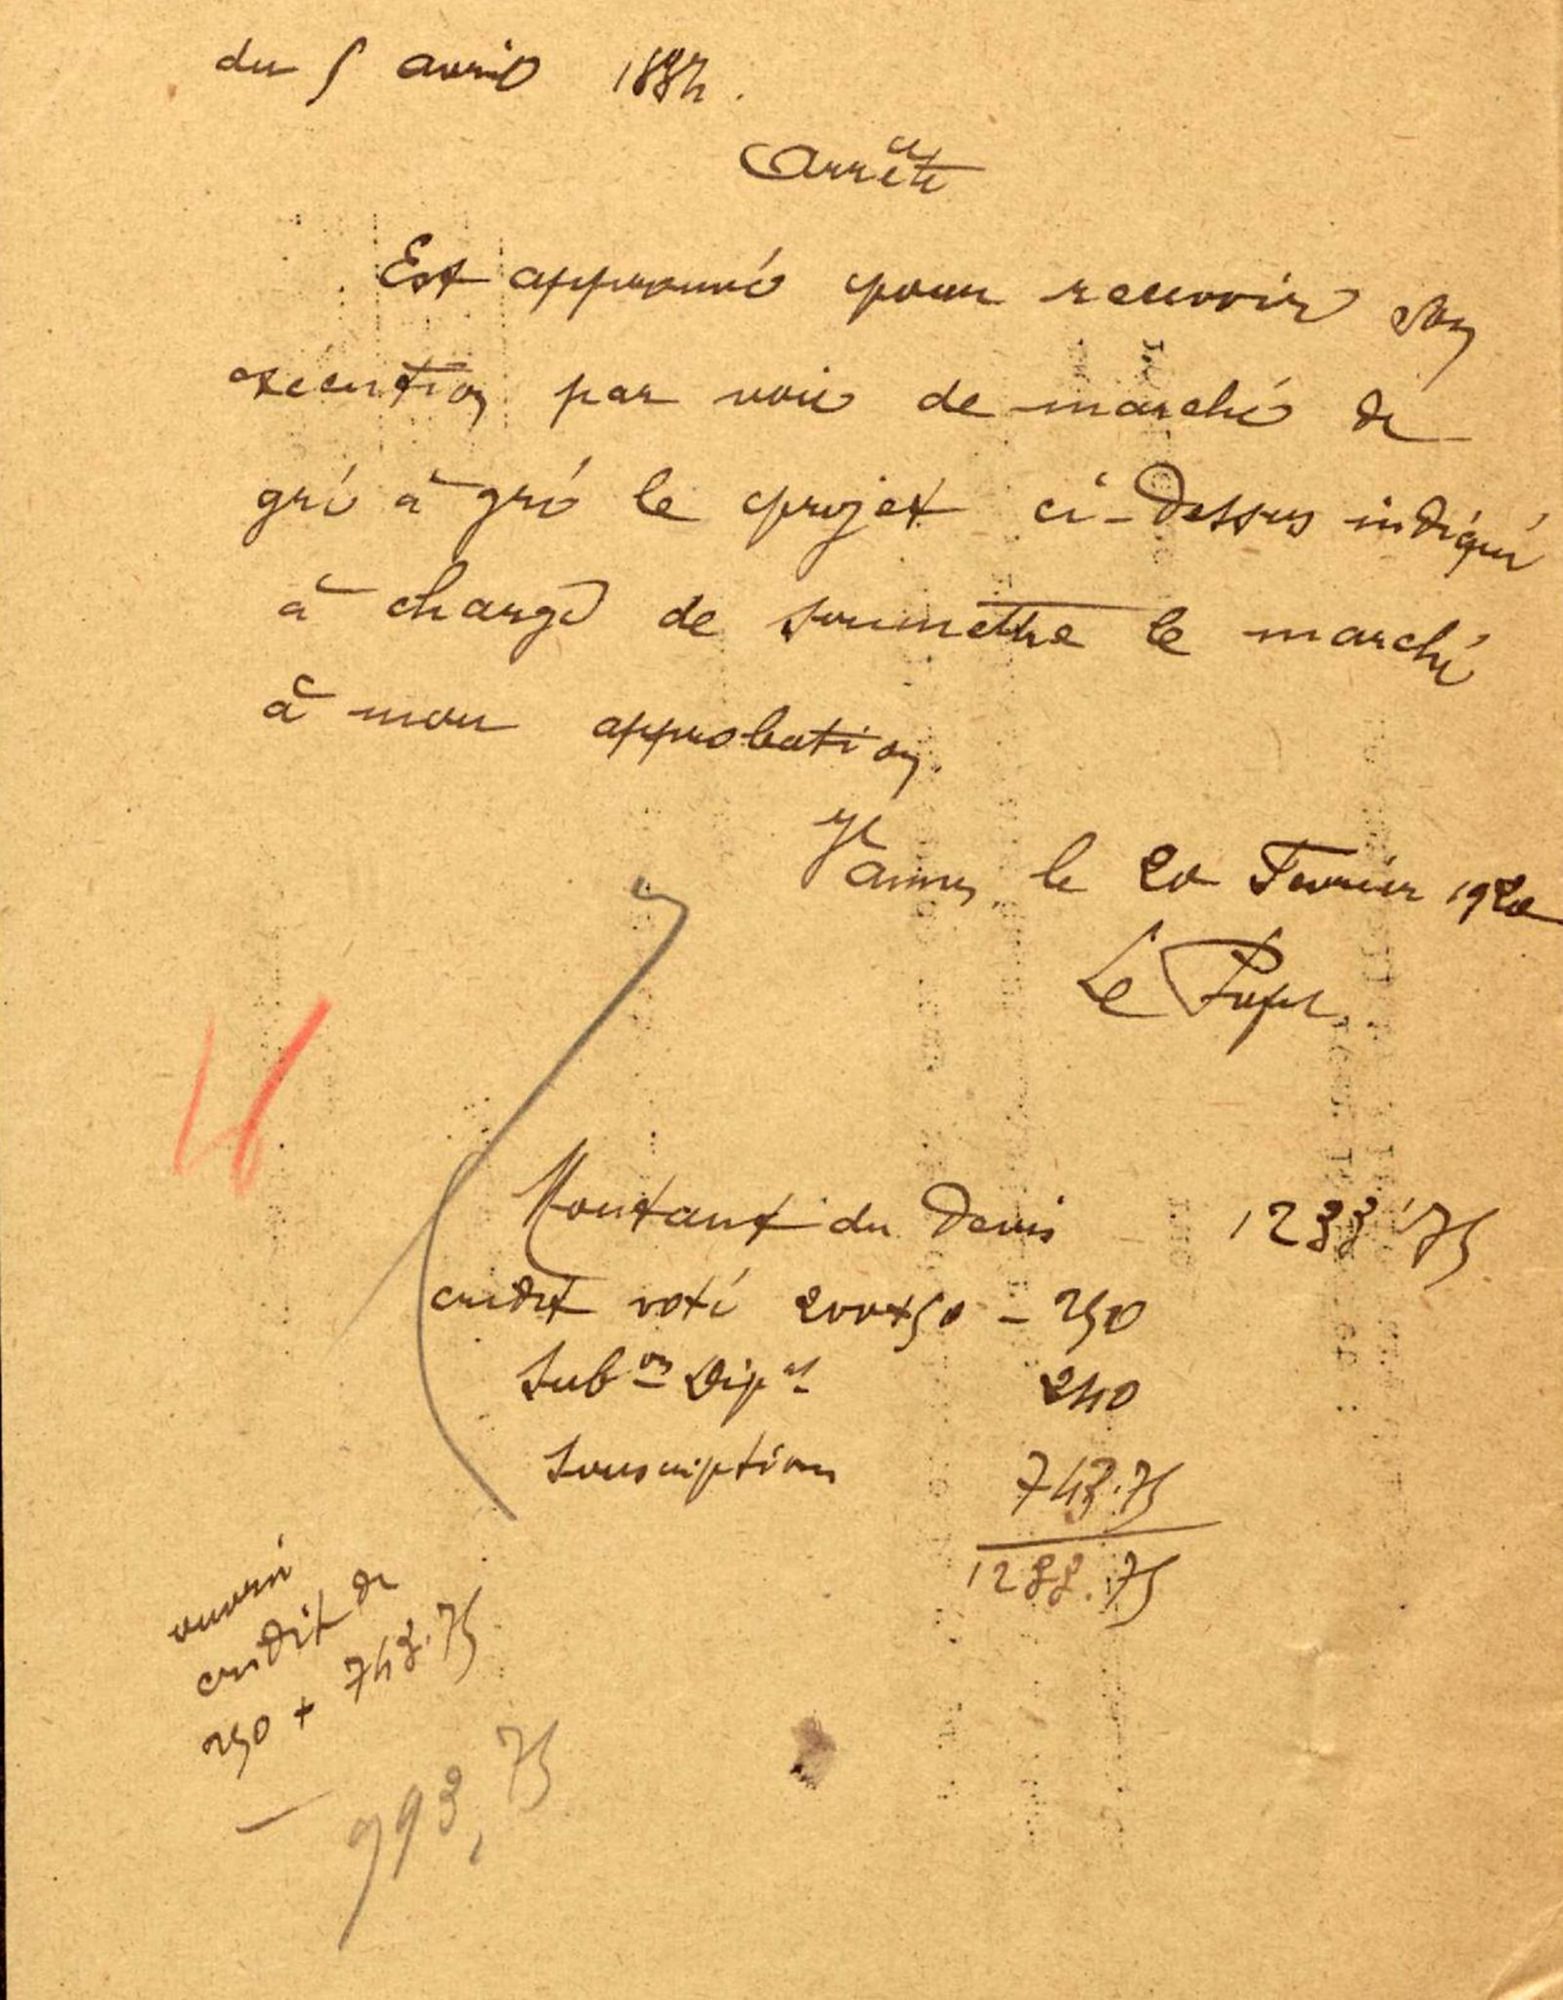 du 5 avril 1884.
Arrête
Est approuvé pour recevoir son
execution par voie de marché de
gré à gré le projet ci-dessus indiqué
à charge de soumettre le marché
à mon approbation.
Vannes, le 20 Fevrier 1920
Le Préfet,
Montant du Devis 1233,75
credit voté 200+50 - 250
Sub on Dep al 240
Souscription 743.75
1233.75
ouvrir
credit de
250 + 743.75
993,75